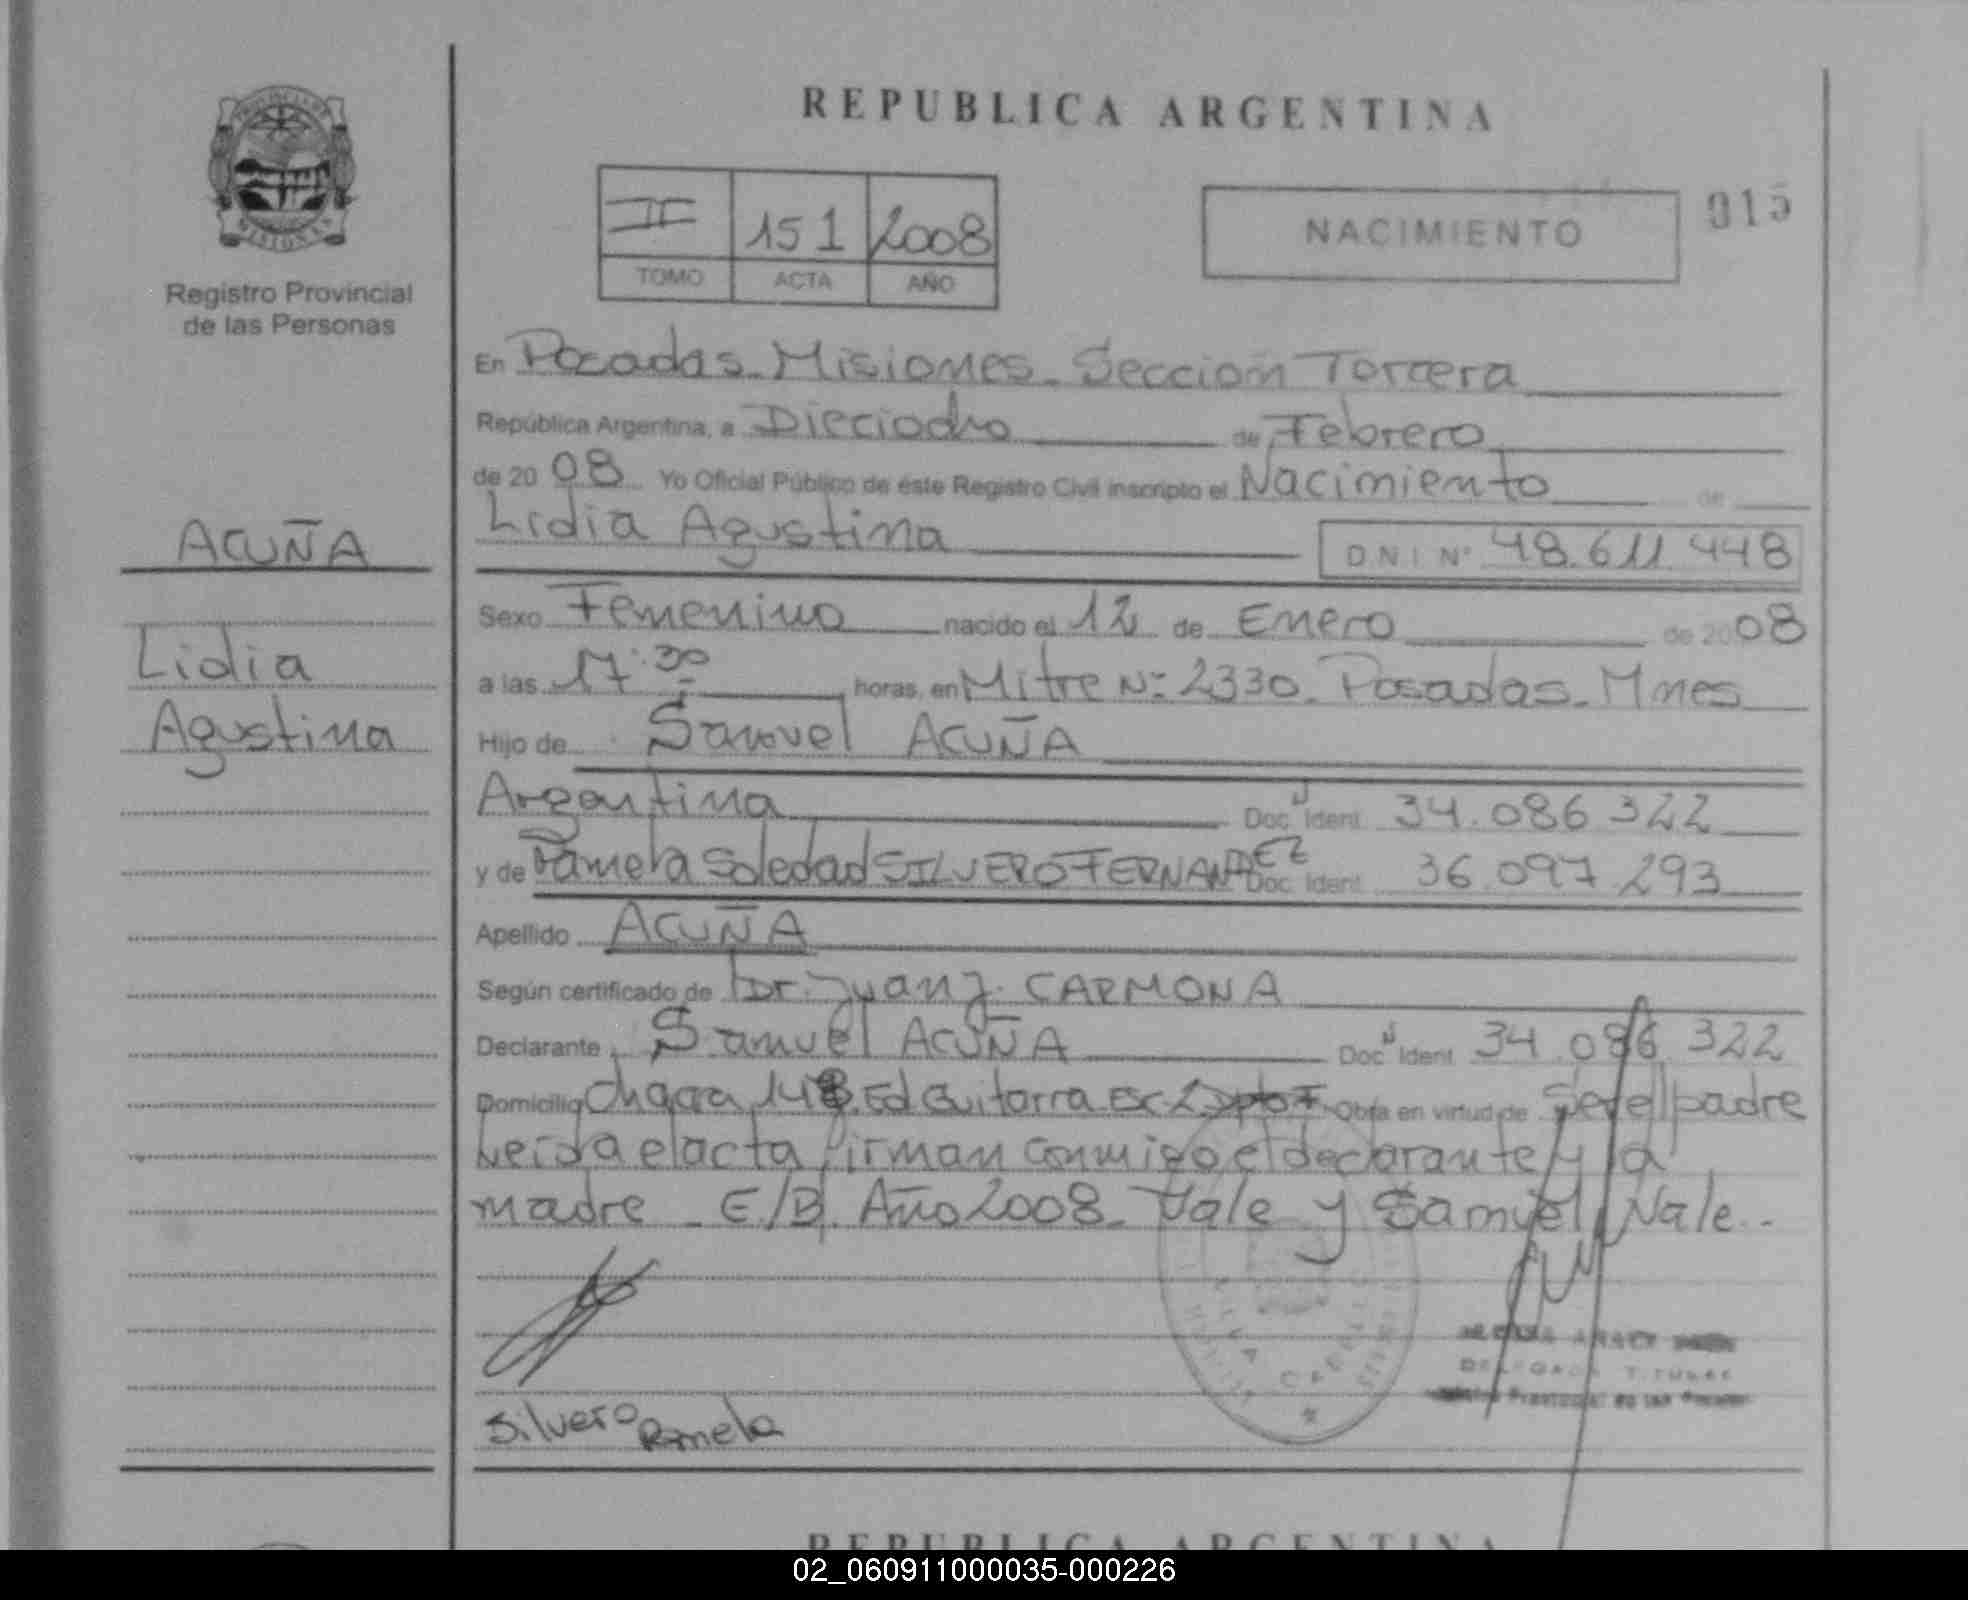 REPUBLICA ARGENTINA
PROVINCIA DE
MISIONES
Registro Provincial
de las Personas
II 151 2008
TOMO ACTA AÑO
NACIMIENTO
015
En Posadas - Misiones - Sección Tercera
República Argentina, a Dieciocho de Febrero
de 2008 Yo Oficial Público de éste Registro Civil inscripto el Nacimiento de
Lidia Agustina D N I Nº 48.611 448
ACUÑA
Lidia
Agustina
Sexo Femenino nacido el 12 de Enero de 2008
a las 17:30 horas, en Mitre Nº 2330 - Posadas - Mnes
Hijo de Samuel ACUÑA
Argentina Doc Ident 34.086 322
y de Pamela Soledad SILVERO FERNANDEZ Doc Ident 36.097 293
Apellido ACUÑA
Según certificado de Dr. Juan J. CARMONA
Declarante Samuel ACUÑA Doc Ident 34 086 322
Domicilio Chacra 148 Ed Guitarra Esc 2 Dpto F Obra en virtud de Ser el padre
Leída el acta firman conmigo el declarante y la
madre - E/B. Año 2008 - Vale y Samuel Vale -
DELEGADA TITULAR
Registro Provincial de las Personas
Silvero Pamela
REPUBLICA ARGENTINA
02_060911000035-000226